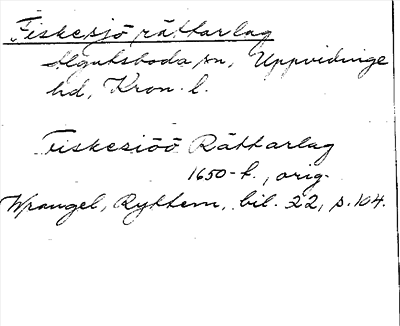 Fiskesjö rättarlag
Älgultsboda sn, Uppvidinge
hd, Kron. l.
Fiskesiöö Rättarlag
1650-t., orig.
Wrangel, Ryttern, bil. 22, s. 104.